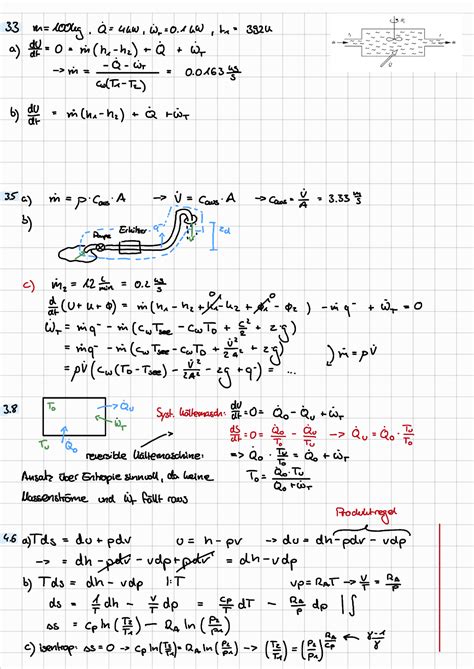 3.3 m = 100kg, Q̇ = 4kW, ẇ_T = 0.1kW, h_1 = 392K
a) dU/dt = 0 = ṁ(h_1-h_2) + Q̇ + ẇ_T
→ ṁ = (-Q̇ - ẇ_T)/(c_w(T_1-T_2)) = 0.0163 kg/s
b) dU/dt = ṁ(h_1-h_2) + Q̇ + ẇ_T
3.5 a) ṁ = ρ·C_aus·A → V̇ = C_aus·A → C_aus = V̇/A = 3.33 m/s
b)
Pumpe Erhitzer q^- 2d
c) ṁ_2 = 12 L/min = 0.2 kg/s
d/dt (U + K + Φ) = ṁ(h_1-h_2 + k_1 - k_2 + Φ_1 - Φ_2) - ṁq^- + Ẇ_T = 0
Ẇ_T = ṁq^- - ṁ(c_w T_See - c_w T_D + c²/2 + 2g)
= ṁq^- - ṁ(c_w T_See - c_w T_D + V̇²/2A² + 2g) ) ṁ = ρV̇
= ρV̇(c_w(T_D - T_See) - V̇²/2A² - 2g + q^-) = ...
3.8 T_0 → Q̇_U
← Ẇ_T
T_U Q̇_0
Syst. Kältemasch: dU/dt = 0 = Q̇_0 - Q̇_U + Ẇ_T
dS/dt = 0 = Q̇_0/T_0 - Q̇_U/T_U → Q̇_U = Q̇_0·T_U/T_0
reversible Kältemaschine: => Q̇_0·T_U/T_0 = Q̇_0 + Ẇ_T
Ansatz über Entropie sinnvoll, da keine T_0 = Q̇_0·T_U/(Q̇_0 + Ẇ_T)
Massenströme und Ẇ fällt raus
Produktregel
4.6 a) Tds = du + pdv u = h - pv → du = dh - pdv - vdp
→ = dh - pdv - vdp + pdv = dh - vdp
b) Tds = dh - vdp |:T vp = R_A T → v/T = R_A/p
ds = 1/T dh - v/T dp = c_p/T dT - R_A/p dp |∫
ss = c_p ln(T_2/T_1) - R_A ln(p_2/p_1)
c) Isentrop: ss = 0 → c_p ln(T_2/T_1) = R_A ln(p_2/p_1) → (T_2/T_1) = (p_2/p_1)^(R_A/c_p) ← (γ-1)/γ